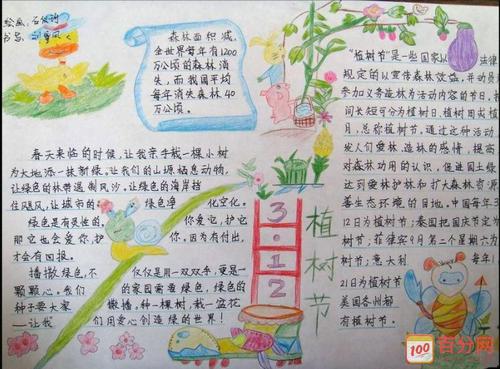 绘画：
书写：
森林面积减
全世界每年有1200
万公顷的森林消
失，而我国平均
每年消失森林40
万公顷。
春天来临的时候，让我亲手栽一棵小树
为大地添一抹新绿。让我们的山坞栖息动物，
让绿色的林带遏制风沙，让绿色的海岸挡
住飓风，让城市的绿色净化空气。
绿色是有灵性的，你爱它，护它
那它也会爱你，护你，因为有付出，
才会有回报。
播撒绿色，不仅仅是一双双手，更是一
颗颗心。我们的家园需要绿色，绿色的
种子要大家撒播，种一棵树，栽一盆花
——让我们用爱心创造绿的世界！
3·12
植树节
“植树节”是一些国家以法律
规定的以宣传森林效益，并动员
参加义务造林为活动内容的节日，按
间长短可分为植树日，植树周或植
月，总称植树节，通过这种活动
发人们爱林、造林的感情，提高
对森林功用的认识，促进国土绿
达到爱林护林和扩大森林资源
善生态环境的目地。中国每年3
12日为植树节；泰国把国庆节定
树节；菲律宾9月第二个星期六为
树节；意大利每年1
21日为植树节
美国各州都
有植树节。
100
百分网